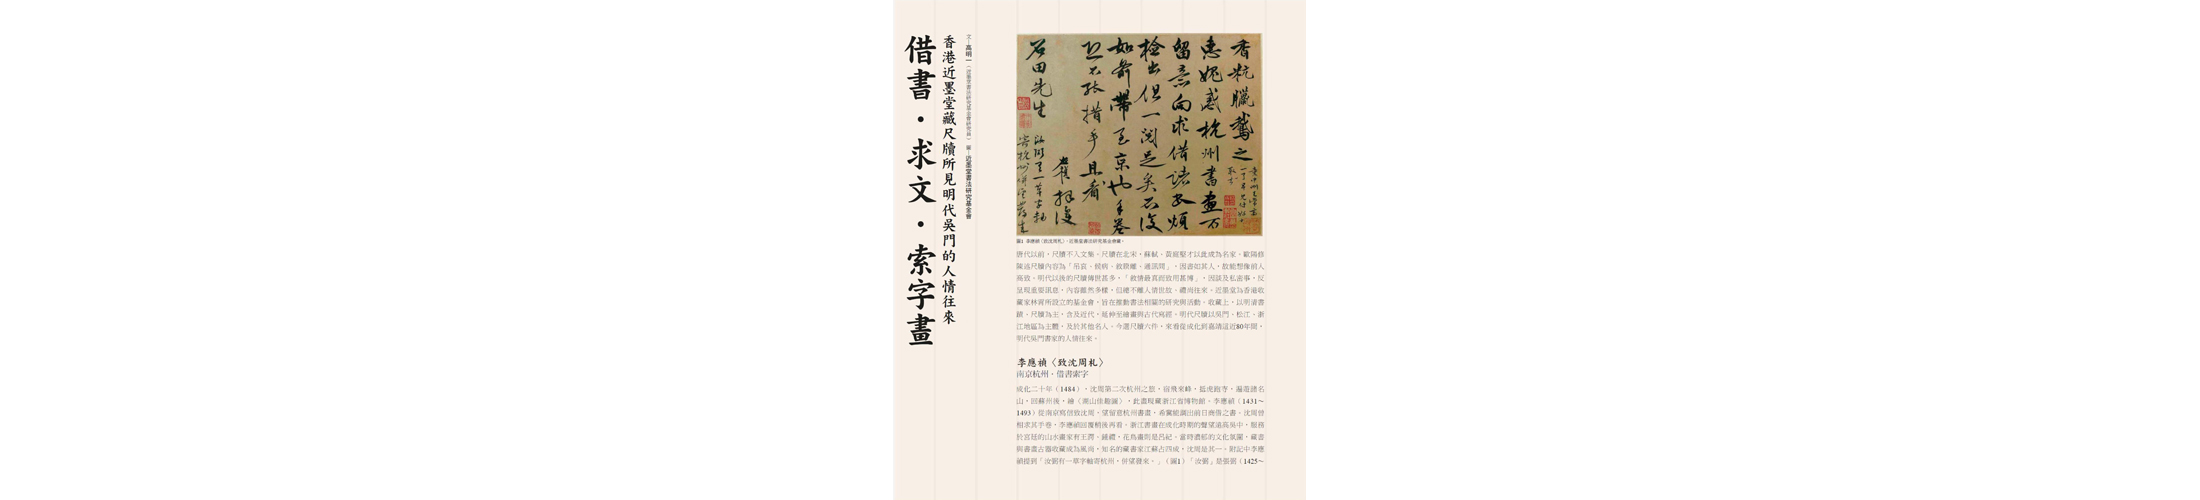 借書・求文・索字畫
香港近墨堂藏尺牘所見明代吳門的人情往來
文—高明一（近墨堂書法研究基金會研究員） 圖—近墨堂書法研究基金會
香秔臘鵝之
惠媿感杭州書畫万
留意向求借諸書煩
檢出但一閱足矣不復
如前帶至京也手卷
且看
石田先生
圖1 李應禎〈致沈周札〉，近墨堂書法研究基金會藏。
唐代以前，尺牘不入文集。尺牘在北宋，蘇軾、黃庭堅才以此成為名家。歐陽修
陳述尺牘內容為「弔哀、候病、敘睽離、通訊問」，因書如其人，故能想像前人
高致。明代以後的尺牘傳世甚多，「敘情最真而致用甚博」，因談及私密事，反
呈現重要訊息。內容雖然多樣，但總不離人情世故、禮尚往來。近墨堂為香港收
藏家林霄所設立的基金會，旨在推動書法相關的研究與活動。收藏上，以明清書
蹟、尺牘為主，含及近代，延伸至繪畫與古代寫經。明代尺牘以吳門、松江、浙
江地區為主體，及於其他名人。今選尺牘六件，來看從成化到嘉靖這近80年間，
明代吳門書家的人情往來。
李應禎〈致沈周札〉
南京杭州，借書索字
成化二十年（1484），沈周第二次杭州之旅，宿飛來峰，低虎跑寺，遍遊諸名
山，回蘇州後，繪〈湖山佳趣圖〉，此畫現藏浙江省博物館。李應禎（1431～
1493）從南京寫信致沈周，望留意杭州書畫，希冀能調出前日商借之書。沈周曾
相求其手卷，李應禎回覆稍後再看。浙江書畫在成化時期的聲望遠高吳中，服務
於宮廷的山水畫家有王諤、鍾禮，花鳥畫則是呂紀。當時濃郁的文化氛圍，藏書
與書畫古器收藏成為風尚，知名的藏書家江蘇占四成，沈周是其一。附記中李應
禎提到「汝弼有一草字軸寄杭州，併望發來。」（圖1）「汝弼」是張弼（1425～